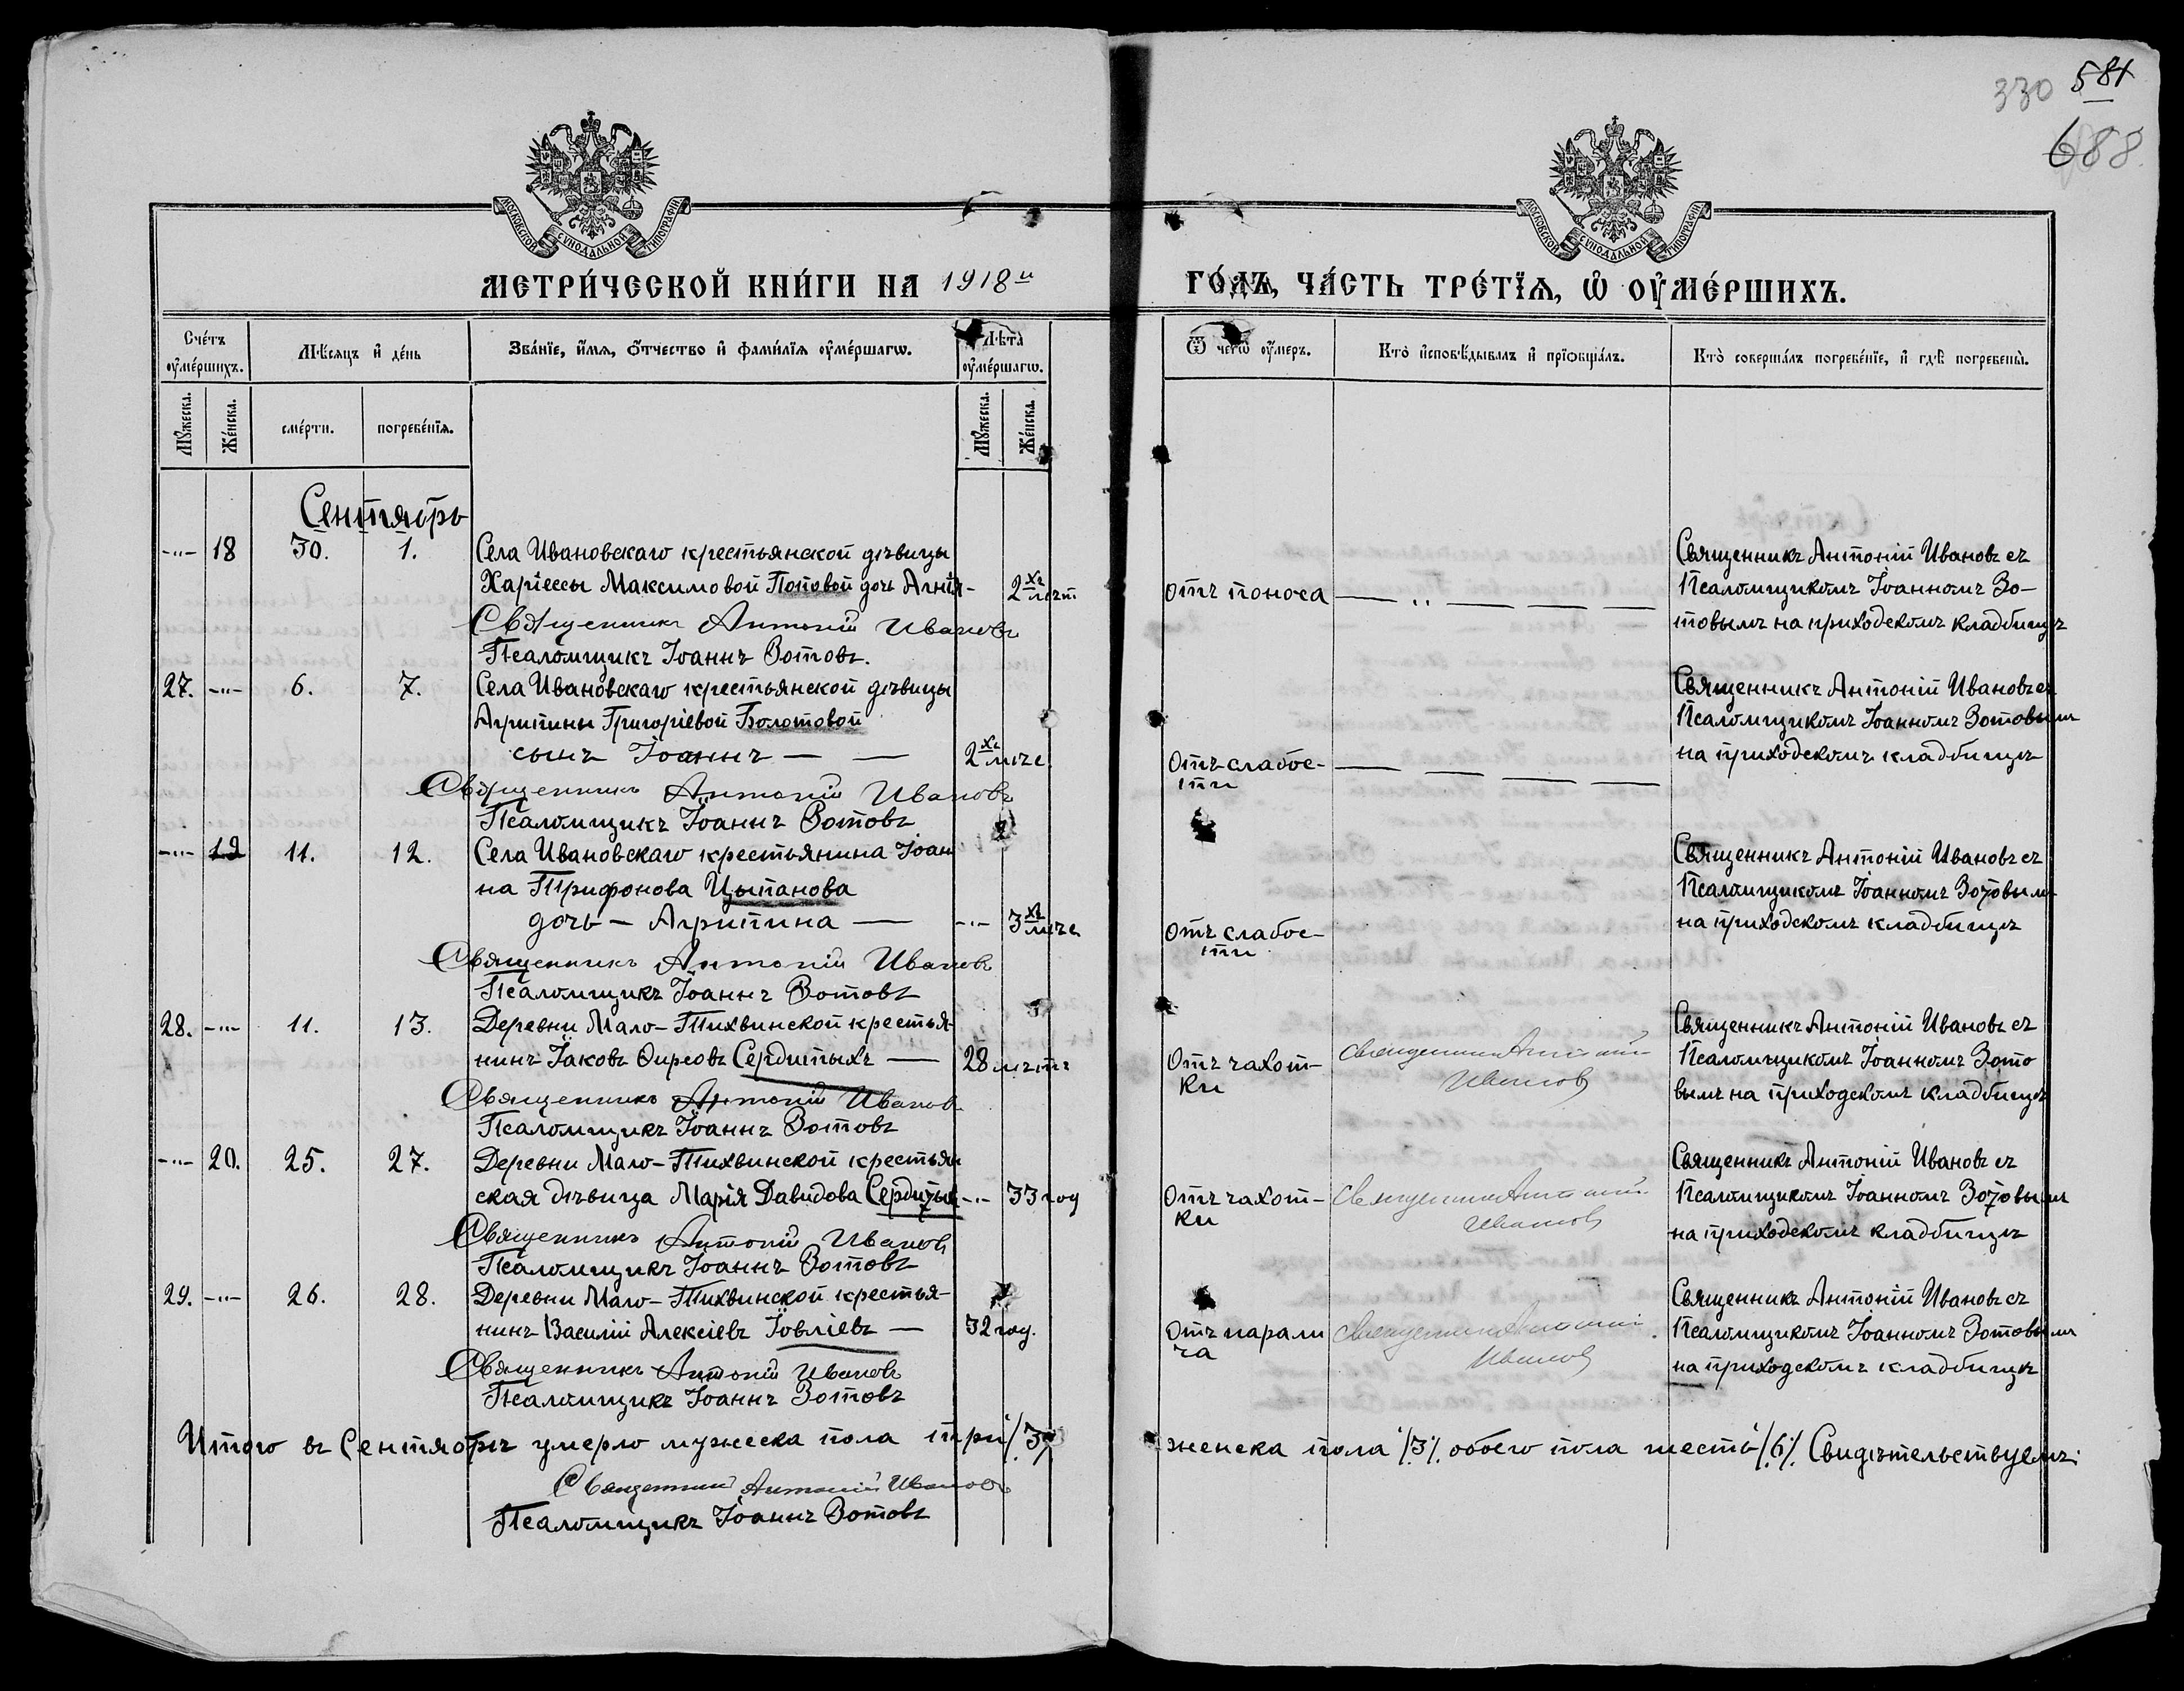 330 581
688
МОСКОВСКОЙ СѴНОДАЛЬНОЙ ТИПОГРАФІИ
МОСКОВСКОЙ СѴНОДАЛЬНОЙ ТИПОГРАФІИ
МЕТРИ́ЧЕСКОЙ КНИ́ГИ НА 1918й ГО́ДЪ, ЧА́СТЬ ТРЕ́ТЇѦ, Ѡ҆ ОУ҆МЕ́РШИХЪ.
Сче́тъ оу҆ме́ршихъ.
Мѣ́сяцъ и҆ де́нь
Зва́нїе, и҆́мѧ, ѻ҆́тчество и҆ фами́лїѧ оу҆ме́ршагѡ.
Лѣ́та оу҆ме́ршагѡ.
Ѿ чегѡ̀ оу҆́меръ.
Кто̀ и҆сповѣ́дывалъ и҆ прїѻбща́лъ.
Кто̀ соверша́лъ погребе́нїе, и҆ гдѣ̀ погребены̀.
Му́жеска.
Же́нска.
сме́рти.
погребе́нїѧ.
Му́жеска.
Же́нска.
Сентябрь
-"- 18 30. 1.
Села Ивановскаго крестьянской дѣвицы
Харіессы Максимовой Поповой дочь Агнія - 2хъ лѣт
Священникъ Антоній Ивановъ
Псаломщикъ Іоаннъ Зотовъ.
отъ поноса — " — — —
Священникъ Антоній Ивановъ съ
Псаломщикомъ Іоанномъ Зо-
товымъ на приходскомъ кладбищѣ
27. -"- 6. 7.
Села Ивановскаго крестьянской дѣвицы
Агрипины Григоріевой Болотовой
сынъ Іоаннъ — — 2хъ мѣс
Священникъ Антоній Ивановъ
Псаломщикъ Іоаннъ Зотовъ
Отъ слабос-
ти — — — —
Священникъ Антоній Ивановъ съ
Псаломщикомъ Іоанномъ Зотовымъ
на приходскомъ кладбищѣ
-"- 19 11. 12.
Села Ивановскаго крестьянина Іоан
на Трифонова Цыпанова
дочь — Агрипина — -"- 3хъ мѣс
Священникъ Антоній Ивановъ
Псаломщикъ Іоаннъ Зотовъ
Отъ слабос-
ти
Священникъ Антоній Ивановъ съ
Псаломщикомъ Іоанномъ Зотовым-
на приходскомъ кладбищѣ
28. -"- 11. 13.
Деревни Мало-Тихвинской крестья-
нинъ Іаковъ Фирсовъ Сердитыхъ — 28 лѣтъ
Священникъ Антоній Ивановъ
Псаломщикъ Іоаннъ Зотовъ
Отъ чахот-
ки
Священникъ Антоній
Ивановъ
Священникъ Антоній Ивановъ съ
Псаломщикомъ Іоанномъ Зото
вымъ на приходскомъ кладбищѣ
-"- 20. 25. 27.
Деревни Мало-Тихвинской крестьян
ская дѣвица Марія Давидова Сердитыхъ -"- 33 год
Священникъ Антоній Ивановъ
Псаломщикъ Іоаннъ Зотовъ
Отъ чахот-
ки
Священникъ Антоній
Ивановъ
Священникъ Антоній Ивановъ съ
Псаломщикомъ Іоанномъ Зотовымъ
на приходскомъ кладбищѣ
29. -"- 26. 28.
Деревни Мало-Тихвинской крестья-
нинъ Василій Алексіевъ Іовліевъ — 32 год.
Священникъ Антоній Ивановъ
Псаломщикъ Іоаннъ Зотовъ
Отъ парали
ча
Священникъ Антоній
Ивановъ
Священникъ Антоній Ивановъ съ
Псаломщикомъ Іоанномъ Зотовымъ
на приходскомъ кладбищѣ
Итого въ Сентябрѣ умерло мужеска пола три /3/ женска пола /3/. обоего пола шесть /6/. Свидѣтельствуемъ:
Священникъ Антоній Ивановъ
Псаломщикъ Іоаннъ Зотовъ